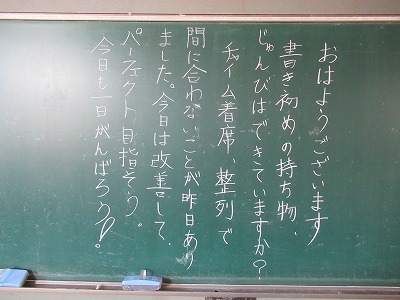 おはようございます
書き初めの持ち物、
じゅんびはできていますか?
チャイム着席、整列で
間に合わないことが昨日あり
ました。今日は改善して、
パーフェクト目指そう。
今日も一日がんばろう。